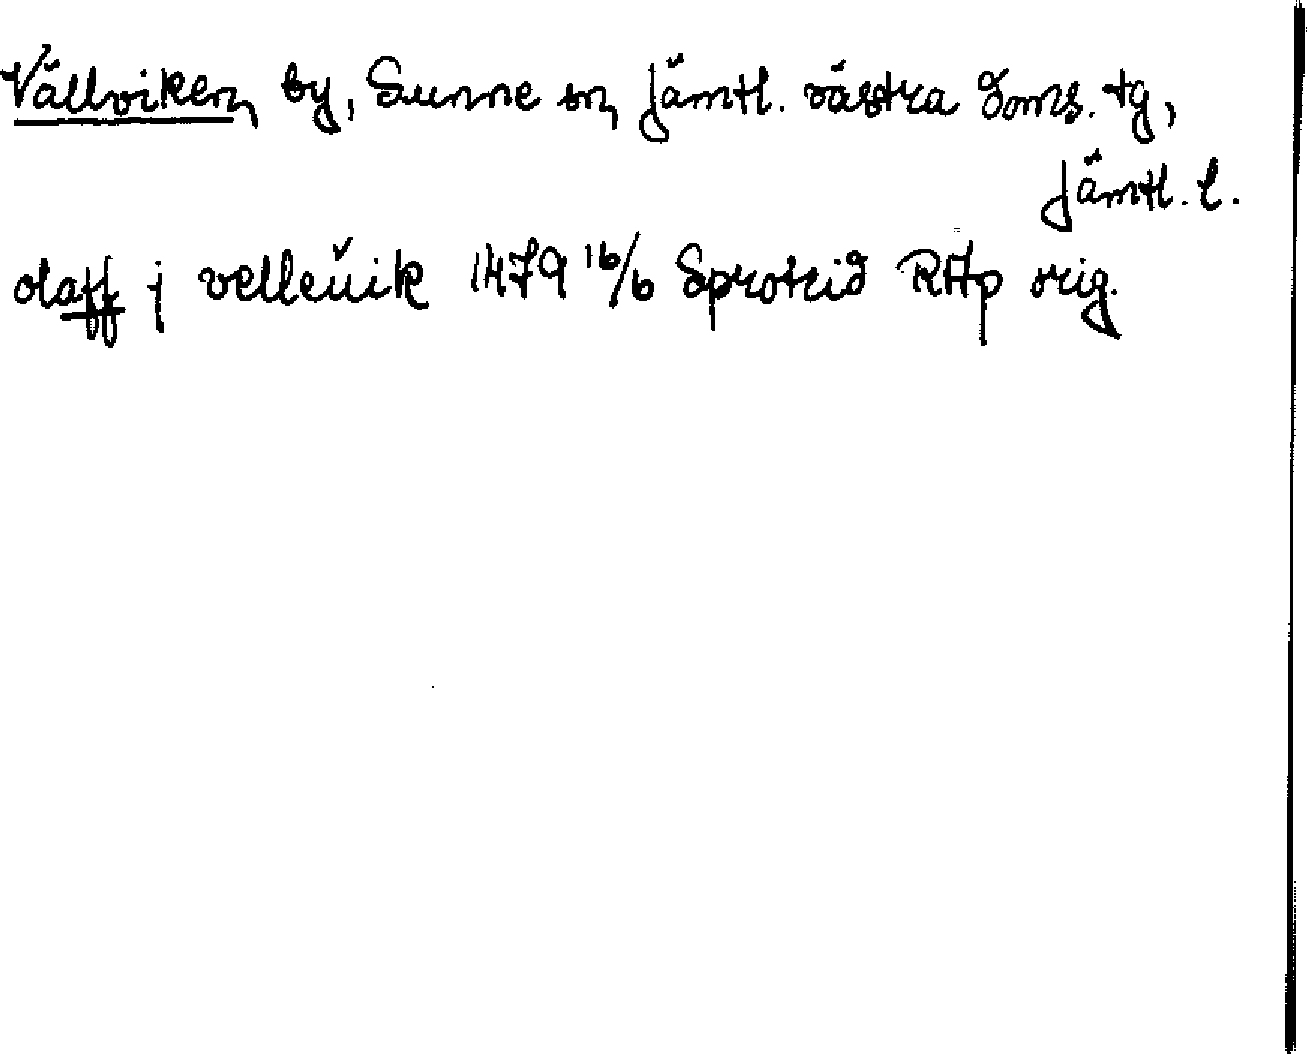 Vällviken, by, Sunne sn, Jämtl. västra doms. tg,
Jämtl. l.
olaff j velleuik 1479 16/6 Sproteid RAp orig.